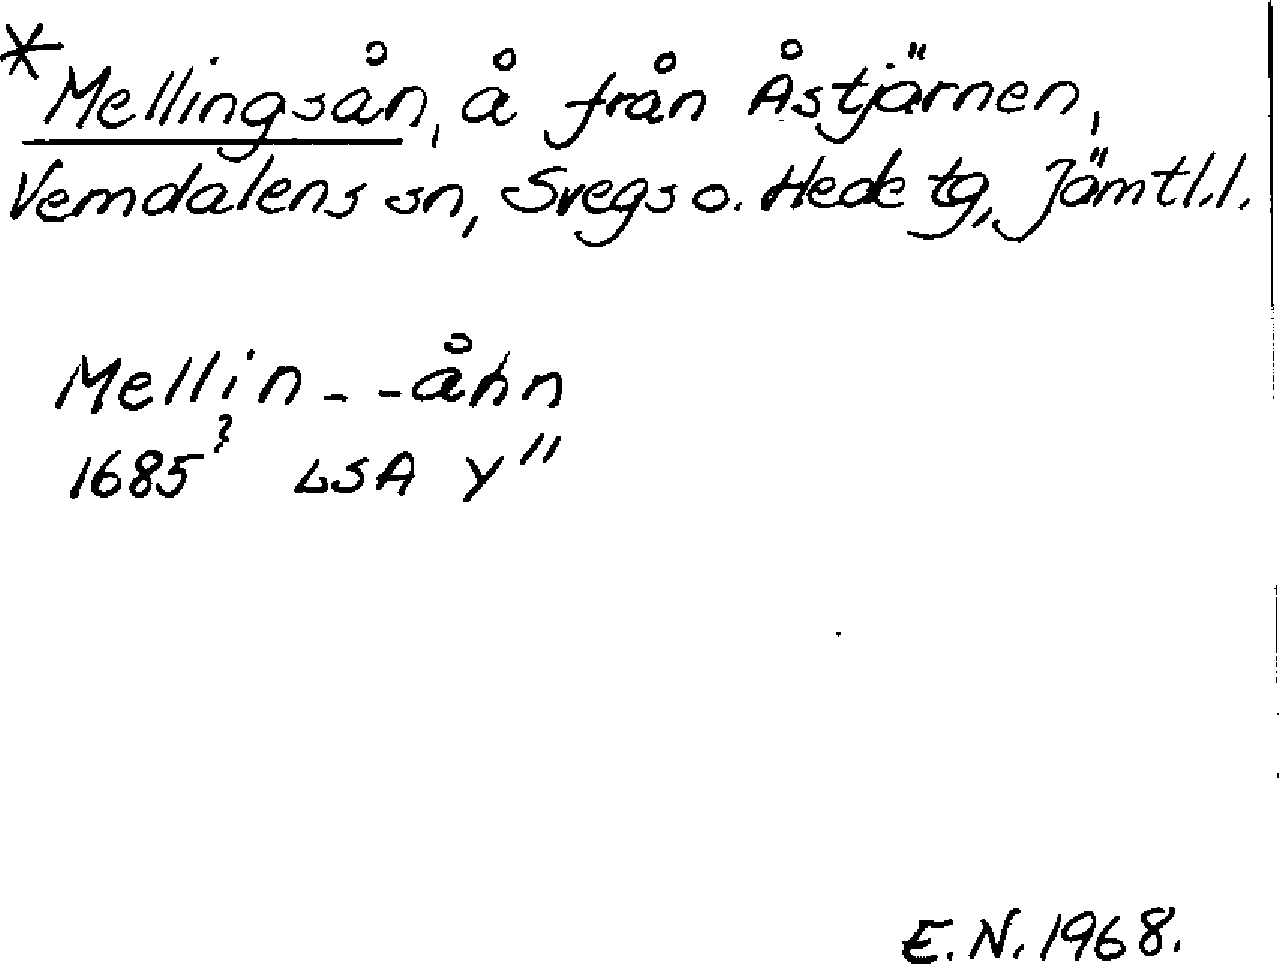 *Mellingsån, å från Åstjärnen,
Vemdalens sn, Svegs o. Hede tg, Jämtl.l.
Mellin - - åhn
1685? LSA Y"
E.N. 1968.